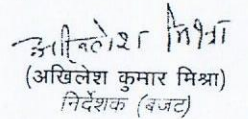 अखिलेश मिश्रा
(अखिलेश कुमार मिश्रा)
निर्देशक (बजट)